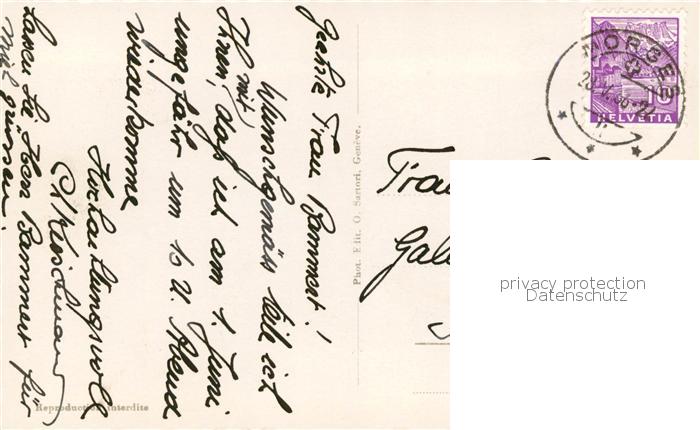 Geehrte Frau Bammert!
Wunschgemäss teile ich
Ihnen mit, daß ich am 1. Juni
ungefähr um 10 U. Abend
wiederkomme
Hochachtungsvoll
Lassen Sie Herr Bammert für
mich grüssen.
Phot. Edit. O. Sartori, Genève.
Reproduction interdite
MORGES
HELVETIA
10
Frau
Gal
privacy protection
Datenschutz